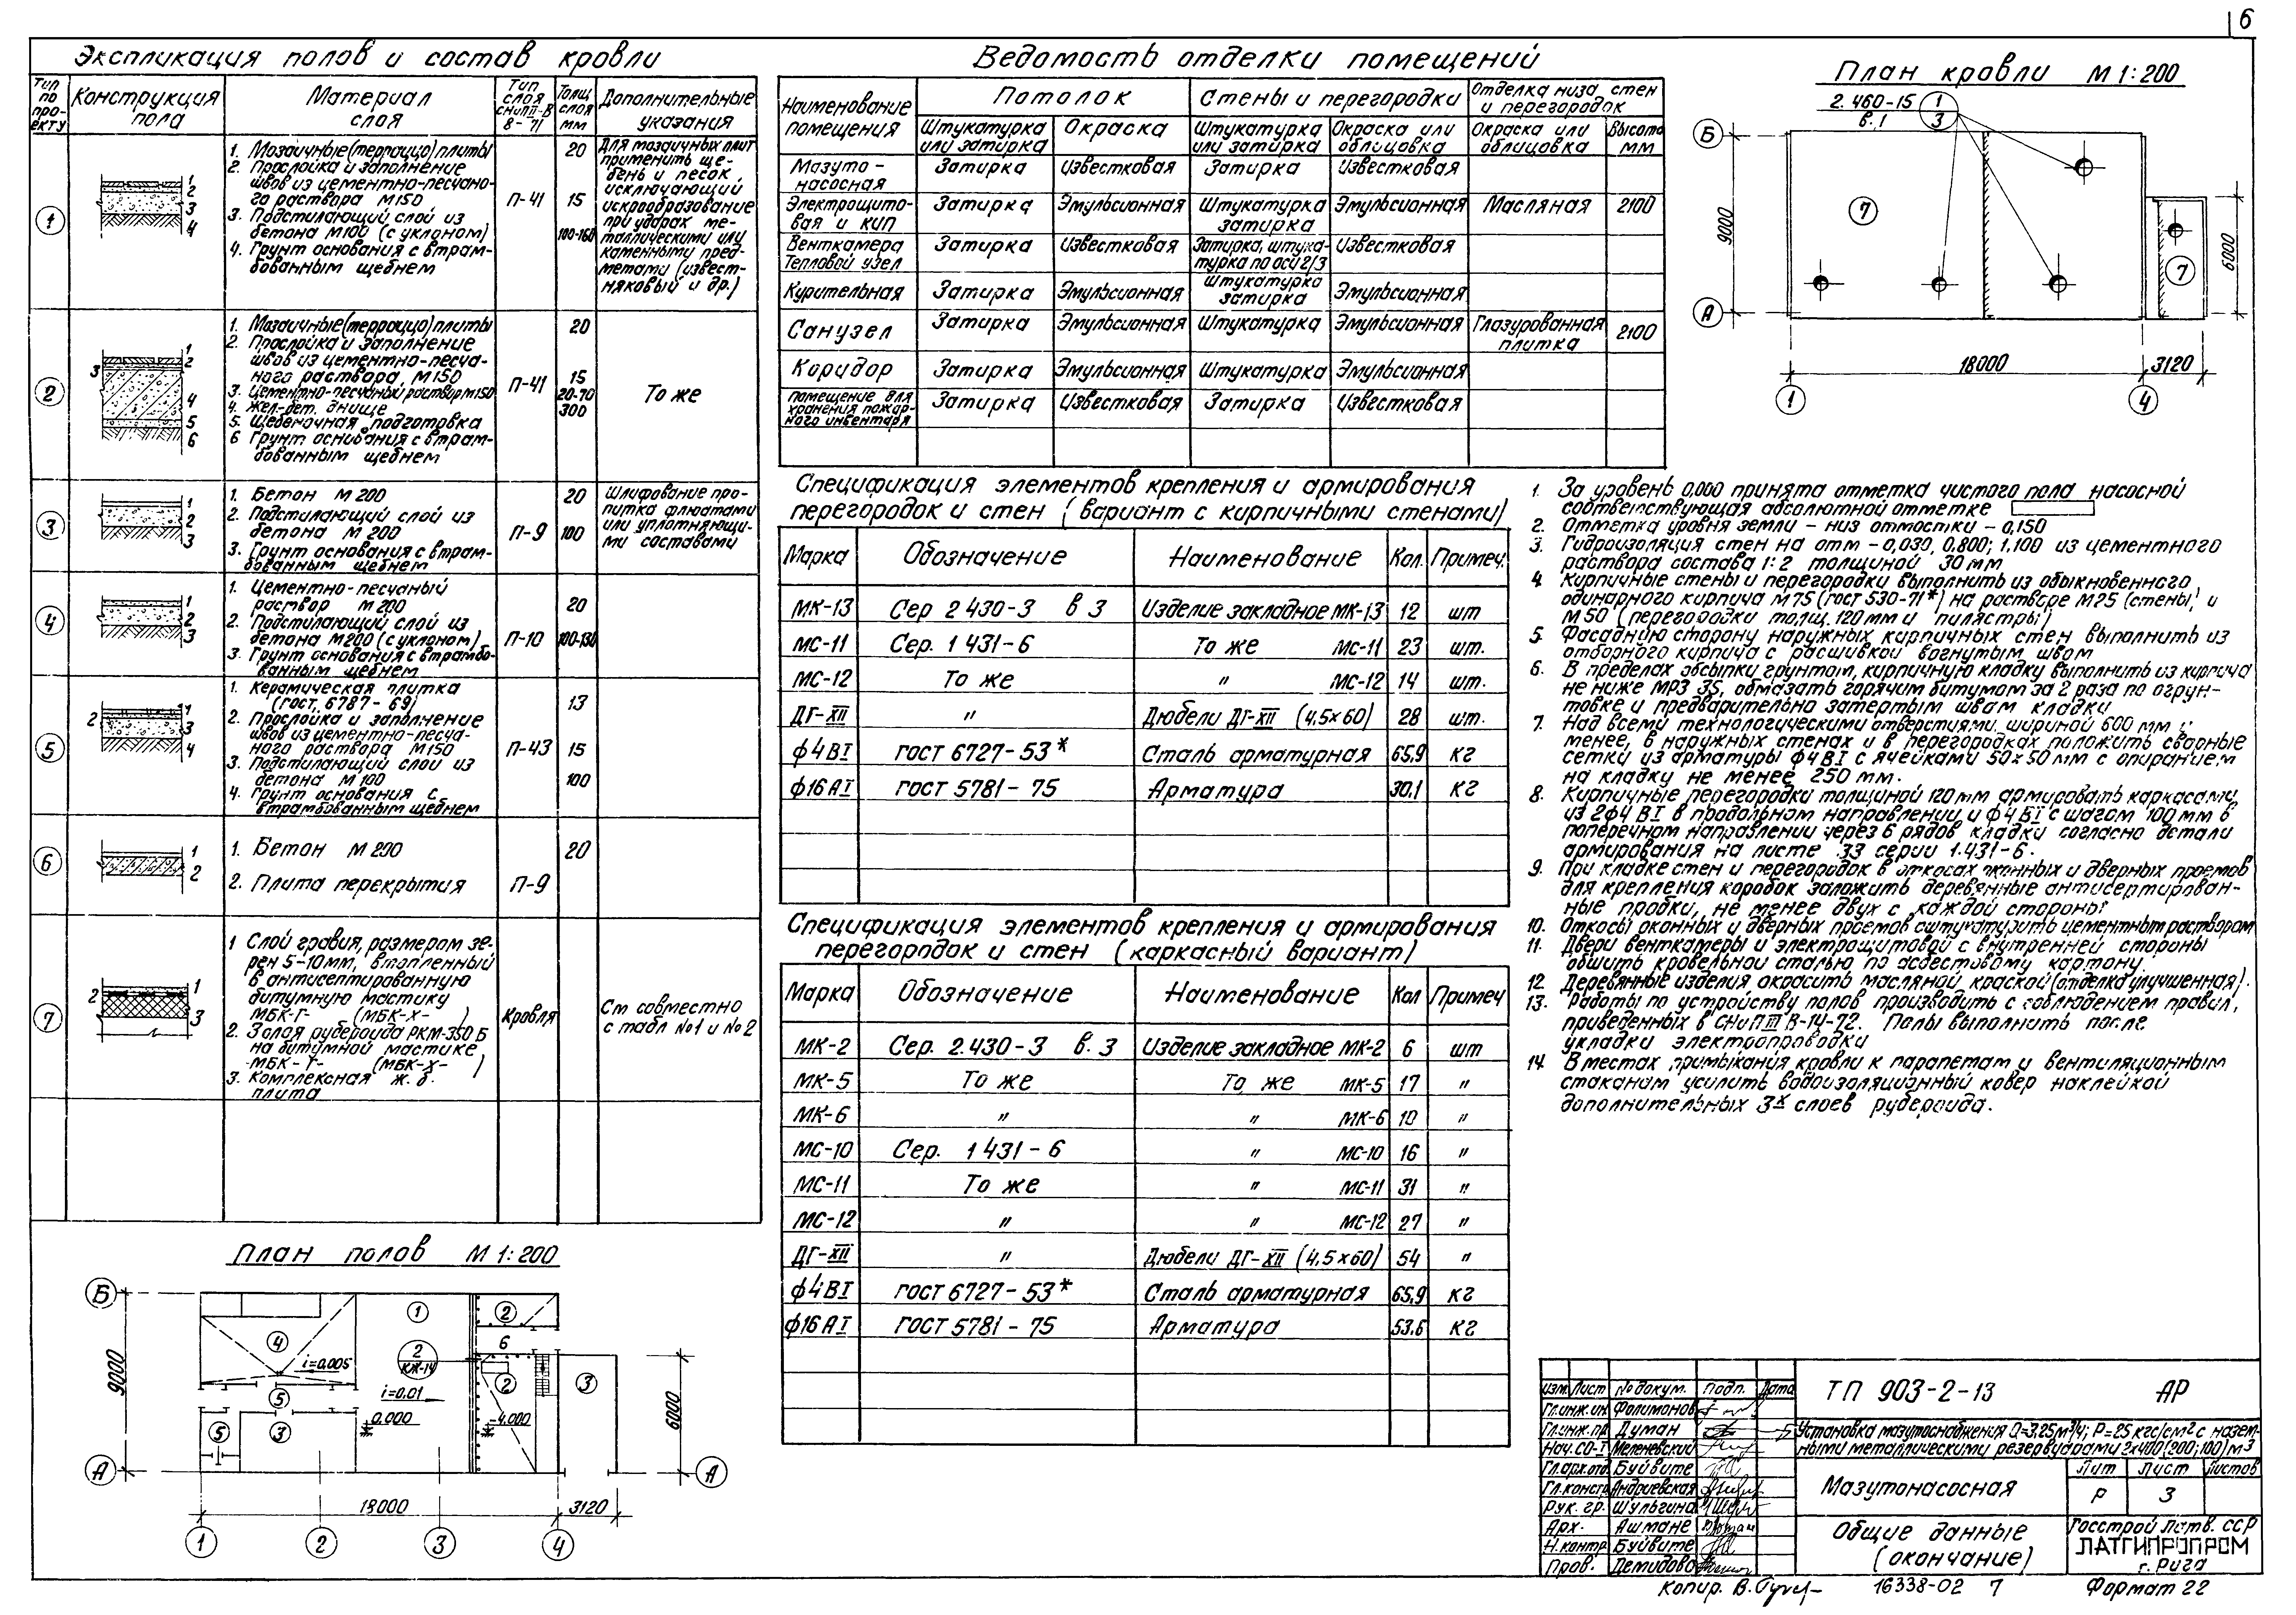 6
Экспликация полов и состав кровли
Тип по про-екту
Конструкция пола
Материал слоя
Тип слоя СНиП II-В 8-71
Толщ слоя мм
Дополнительные указания
1
1. Мозаичные (терраццо) плиты
2. Прослойка и заполнение
швов из цементно-песчано-
го раствора М150
3. Подстилающий слой из
бетона М100 (с уклоном)
4. Грунт основания с втрам-
бованным щебнем
П-41
20
15
100-160
Для мозаичных плит
применить ще-
бень и песок,
исключающий
искрообразование
при ударах ме-
таллическими или
каменными пред-
метами (извест-
няковый и др.)
2
1. Мозаичные (терраццо) плиты
2. Прослойка и заполнение
швов из цементно-песча-
ного раствора М150
3. Цементно-песчаный раствор М150
4. Жел-бет. днище
5. Щебеночная подготовка
6 Грунт основания с втрам-
бованным щебнем
П-41
20
15
20-70
300
То же
3
1. Бетон М200
2. Подстилающий слой из
бетона М200
3. Грунт основания с втрам-
бованным щебнем
П-9
20
100
Шлифование про-
питка флюатами
или уплотняющи-
ми составами
4
1. Цементно-песчаный
раствор М200
2. Подстилающий слой из
бетона М200 (с уклоном)
3. Грунт основания с втрамбо-
ванным щебнем
П-10
20
100-130
5
1. Керамическая плитка
(гост. 6787-69)
2. Прослойка и заполнение
швов из цементно-песча-
ного раствора М150
3. Подстилающий слой из
бетона М100
4. Грунт основания с
втрамбованным щебнем
П-43
13
15
100
6
1. Бетон М200
2. Плита перекрытия
П-9
20
7
1 Слой гравия, размером зе-
рен 5-10мм, втопленный
в антисептированную
битумную мастику
МБК-Г- (МБК-Х- )
2. 3слоя рубероида РКМ-350Б
на битумной мастике
-МБК-Г- (МБК-Х- )
3. Комплексная ж.б.
плита
Кровля
См совместно
с табл №1 и №2
План полов М 1:200
Б
А
9000
4
i=0.005
5
5
3
1
2
КЖ-14
i=0.01
0.000
-4.000
2
6
2
3
6000
А
18000
3120
1 2 3 4
Ведомость отделки помещений
Наименование помещения
Потолок
Стены и перегородки
Отделка низа стен и перегородок
Штукатурка или затирка
Окраска
Штукатурка или затирка
Окраска или облицовка
Окраска или облицовка
Высота мм
Мазуто-насосная Затирка Известковая Затирка Известковая
Электрощито-вая и КИП Затирка Эмульсионная Штукатурка затирка Эмульсионная Масляная 2100
Венткамера Тепловой узел Затирка Известковая Затирка, штука-турка по оси 2/3 Известковая
Курительная Затирка Эмульсионная Штукатурка затирка Эмульсионная
Санузел Затирка Эмульсионная Штукатурка Эмульсионная Глазурованная плитка 2100
Коридор Затирка Эмульсионная Штукатурка Эмульсионная
Помещение для хранения пожар-ного инвентаря Затирка Известковая Затирка Известковая
Спецификация элементов крепления и армирования
перегородок и стен (вариант с кирпичными стенами)
Марка Обозначение Наименование Кол. Примеч.
МК-13 Сер 2 430-3 в 3 Изделие закладное МК-13 12 шт
МС-11 Сер. 1 431-6 То же МС-11 23 шт.
МС-12 То же " МС-12 14 шт.
ДГ-XII " Дюбели ДГ-XII (4.5х60) 28 шт.
ф4ВI ГОСТ 6727-53* Сталь арматурная 65.9 кг
ф16АI ГОСТ 5781-75 Арматура 30.1 кг
Спецификация элементов крепления и армирования
перегородок и стен (каркасный вариант)
Марка Обозначение Наименование Кол Примеч
МК-2 Сер. 2.430-3 в. 3 Изделие закладное МК-2 6 шт
МК-5 То же То же МК-5 17 "
МК-6 " " МК-6 10 "
МС-10 Сер. 1 431-6 " МС-10 16 "
МС-11 То же " МС-11 31 "
МС-12 " " МС-12 27 "
ДГ-XII " Дюбели ДГ-XII (4.5х60) 54 "
ф4ВI ГОСТ 6727-53* Сталь арматурная 65.9 кг
ф16АI ГОСТ 5781-75 Арматура 53.6 кг
План кровли М 1:200
2.460-15 в.1
1
3
Б
А
9000
7
7
6000
18000
3120
1
4
1. За уровень 0,000 принята отметка чистого пола насосной
соответствующая абсолютной отметке
2. Отметка уровня земли - низ отмостки -0,150
3. Гидроизоляция стен на отм -0,030, 0,800; 1,100 из цементного
раствора состава 1:2 толщиной 30мм
4. Кирпичные стены и перегородки выполнить из обыкновенного
одинарного кирпича М75 (гост 530-71*) на растворе М25 (стены) и
М50 (перегородки толщ. 120мм и пилястры)
5. Фасадную сторону наружных кирпичных стен выполнить из
отборного кирпича с расшивкой вогнутым швом
6. В пределах обсыпки грунтом, кирпичную кладку выполнить из кирпича
не ниже МРЗ 35, обмазать горячим битумом за 2 раза по огрун-
товке и предварительно затертым швам кладки
7. Над всеми технологическими отверстиями, шириной 600 мм и
менее, в наружных стенах и в перегородках положить сварные
сетки из арматуры ф4ВI с ячейками 50х50мм с опиранием
на кладку не менее 250мм.
8. Кирпичные перегородки толщиной 120мм армировать каркасами
из 2ф4 ВI в продольном направлении и ф4ВI с шагом 100мм в
поперечном направлении через 6 рядов кладки согласно детали
армирования на листе 33 серии 1.431-6.
9. При кладке стен и перегородок в откосах оконных и дверных проемов
для крепления коробок заложить деревянные антисептирован-
ные пробки, не менее двух с каждой стороны
10. Откосы оконных и дверных проемов оштукатурить цементным раствором
11. Двери венткамеры и электрощитовой с внутренней стороны
обшить кровельной сталью по асбестовому картону.
12. Деревянные изделия окрасить масляной краской (отделка улучшенная).
13. Работы по устройству полов производить с соблюдением правил,
приведенных в СНиП III В-14-72. Полы выполнить после
укладки электропроводки
14. В местах примыкания кровли к парапетам и вентиляционным
стаканам усилить водоизоляционный ковер наклейкой
дополнительных 3х слоев рубероида.
Изм. Лист № докум. Подп. Дата
Гл.инж.ин Филимонов
Гл.инж.пр Думан
Нач.СО-1 Меленевский
Гл.арх.отд Буйвите
Гл.констр Андриевская
Рук. гр. Шульгина
Арх. Ашмане
Н.контр Буйвите
Пров. Демидова
ТП 903-2-13 АР
Установка мазутоснабжения Q=3,25м³/ч; Р=25 кгс/см² с назем-
ными металлическими резервуарами 2х400(200;100)м³
Мазутонасосная
Лит Лист Листов
Р 3
Общие данные
(окончание)
Госстрой Латв. ССР
ЛАТГИПРОПРОМ
г. Рига
Копир. В.
16338-02 7
Формат 22